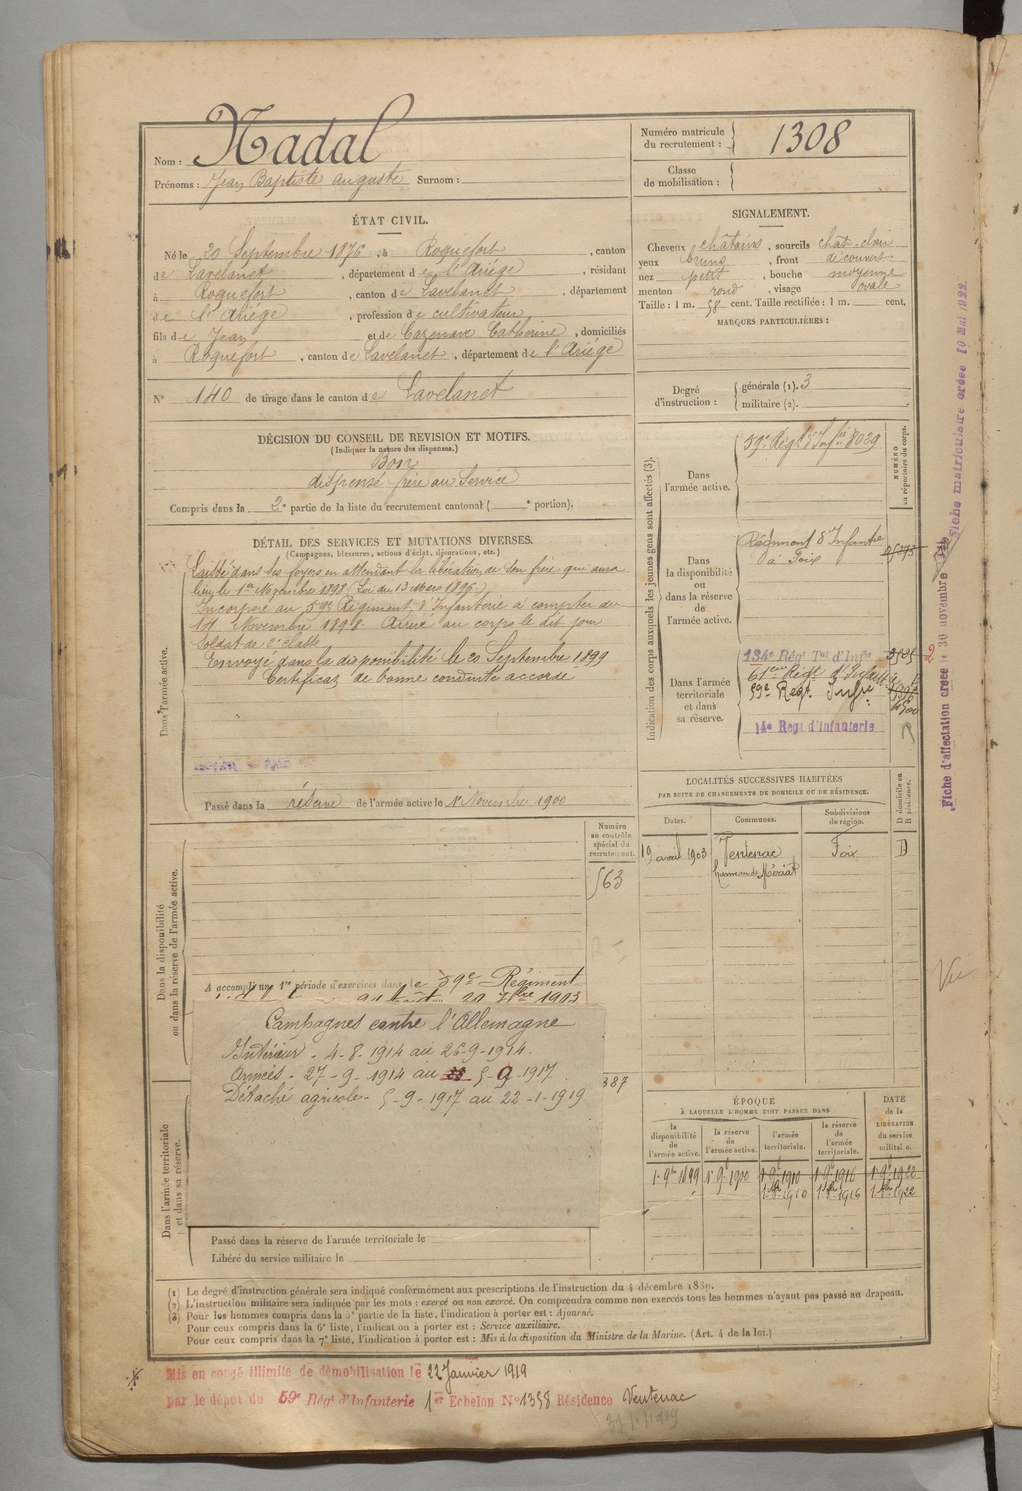 Nom : Nadal
Prénoms : Jean Baptiste auguste Surnom :
Numéro matricule du recrutement : 1308
Classe de mobilisation :
ÉTAT CIVIL.
Né le 20 Septembre 1876, à Roquefort, canton
de Lavelanet, département de l'Ariége, résidant
à Roquefort, canton de Lavelanet, département
de l'Ariège, profession de cultivateur
fils de Jean et de Cazenave Catherine, domiciliés
à Roquefort, canton de Lavelanet, département de l'Ariége
N° 140 de tirage dans le canton de Lavelanet
SIGNALEMENT.
Cheveux châtains, sourcils chât. clair
yeux bruns, front découvert
nez petit, bouche moyenne
menton rond, visage ovale
Taille : 1 m. 58 cent. Taille rectifiée : 1 m. cent.
MARQUES PARTICULIÈRES :
Degré d'instruction : générale (1). 3
militaire (2).
DÉCISION DU CONSEIL DE REVISION ET MOTIFS.
(Indiquer la nature des dispenses.)
Bon
dispensé frère au Service
Compris dans la 2e partie de la liste du recrutement cantonal ( e portion).
DÉTAIL DES SERVICES ET MUTATIONS DIVERSES.
(Campagnes, blessures, actions d'éclat, décorations, etc.)
Dans l'armée active.
Laissé dans ses foyers en attendant la libération de son frère qui aura
lieu le 1er Novembre 1898 (Loi du 13 Mars 1896)
Incorporé au 59e Régiment d'Infanterie à compter du
17 Novembre 1898. Arrivé au corps le dit jour
soldat de 2e classe
Envoyé dans la disponibilité le 20 Septembre 1899
Certificat de bonne conduite accordé
Passé dans la réserve de l'armée active le 1er Novembre 1900
Indication des corps auxquels les jeunes gens sont affectés (3).
NUMÉRO au répertoire du corps.
Dans l'armée active.
59e Régt d'Infie 8039
Dans la disponibilité ou dans la réserve de l'armée active.
Régiment d'Infante
à Foix
Dans l'armée territoriale et dans sa réserve.
134e Régt Tal d'Infie
61eme Régt d'Infant
59e Regt Infie
14e Regt d'Infanterie
LOCALITÉS SUCCESSIVES HABITÉES
PAR SUITE DE CHANGEMENTS DE DOMICILE OU DE RÉSIDENCE.
Dates. Communes. Subdivisions de région. D domicile ou R résidence.
19 avril 1903 Ventenac Foix D
hameau de Mériat
Dans la disponibilité ou dans la réserve de l'armée active.
Numéro au contrôle spécial du recrutement.
563
A accompli une 1re période d'exercices dans le 59e Régiment
20 7bre 1903
Campagnes contre l'Allemagne
Intérieur - 4-8-1914 au 26-9-1914.
Armées - 27-9-1914 au 5-9-1917.
Détaché agricole - 5-9-1917 au 22-1-1919
387
Dans l'armée territoriale et dans sa réserve.
Passé dans la réserve de l'armée territoriale le
Libéré du service militaire le
ÉPOQUE
À LAQUELLE L'HOMME DOIT PASSER DANS
la disponibilité de l'armée active. la réserve de l'armée active. l'armée territoriale. la réserve de l'armée territoriale.
DATE de la LIBÉRATION du service militaire.
1. 9bre 1899 1. 9bre 1900 1. 9bre 1910 1. 9bre 1916 1. 9bre 1922
(1) Le degré d'instruction générale sera indiqué conformément aux prescriptions de l'instruction du 4 décembre 1889.
(2) L'instruction militaire sera indiquée par les mots : exercé ou non exercé. On comprendra comme non exercés tous les hommes n'ayant pas passé au drapeau.
(3) Pour les hommes compris dans la 5e partie de la liste, l'indication à porter est : Ajourné.
Pour ceux compris dans la 6e liste, l'indication à porter est : Service auxiliaire.
Pour ceux compris dans la 7e liste, l'indication à porter est : Mis à la disposition du Ministre de la Marine. (Art. 4 de la loi.)
Mis en congé illimité de démobilisation le 22 Janvier 1919
par le dépot du 59e Régt d'Infanterie 1er Echelon N° 1358 Résidence Ventenac
Fiche d'affectation créée le 30 novembre
Fiche matriculaire créée 10 Mai 1922.
Vu